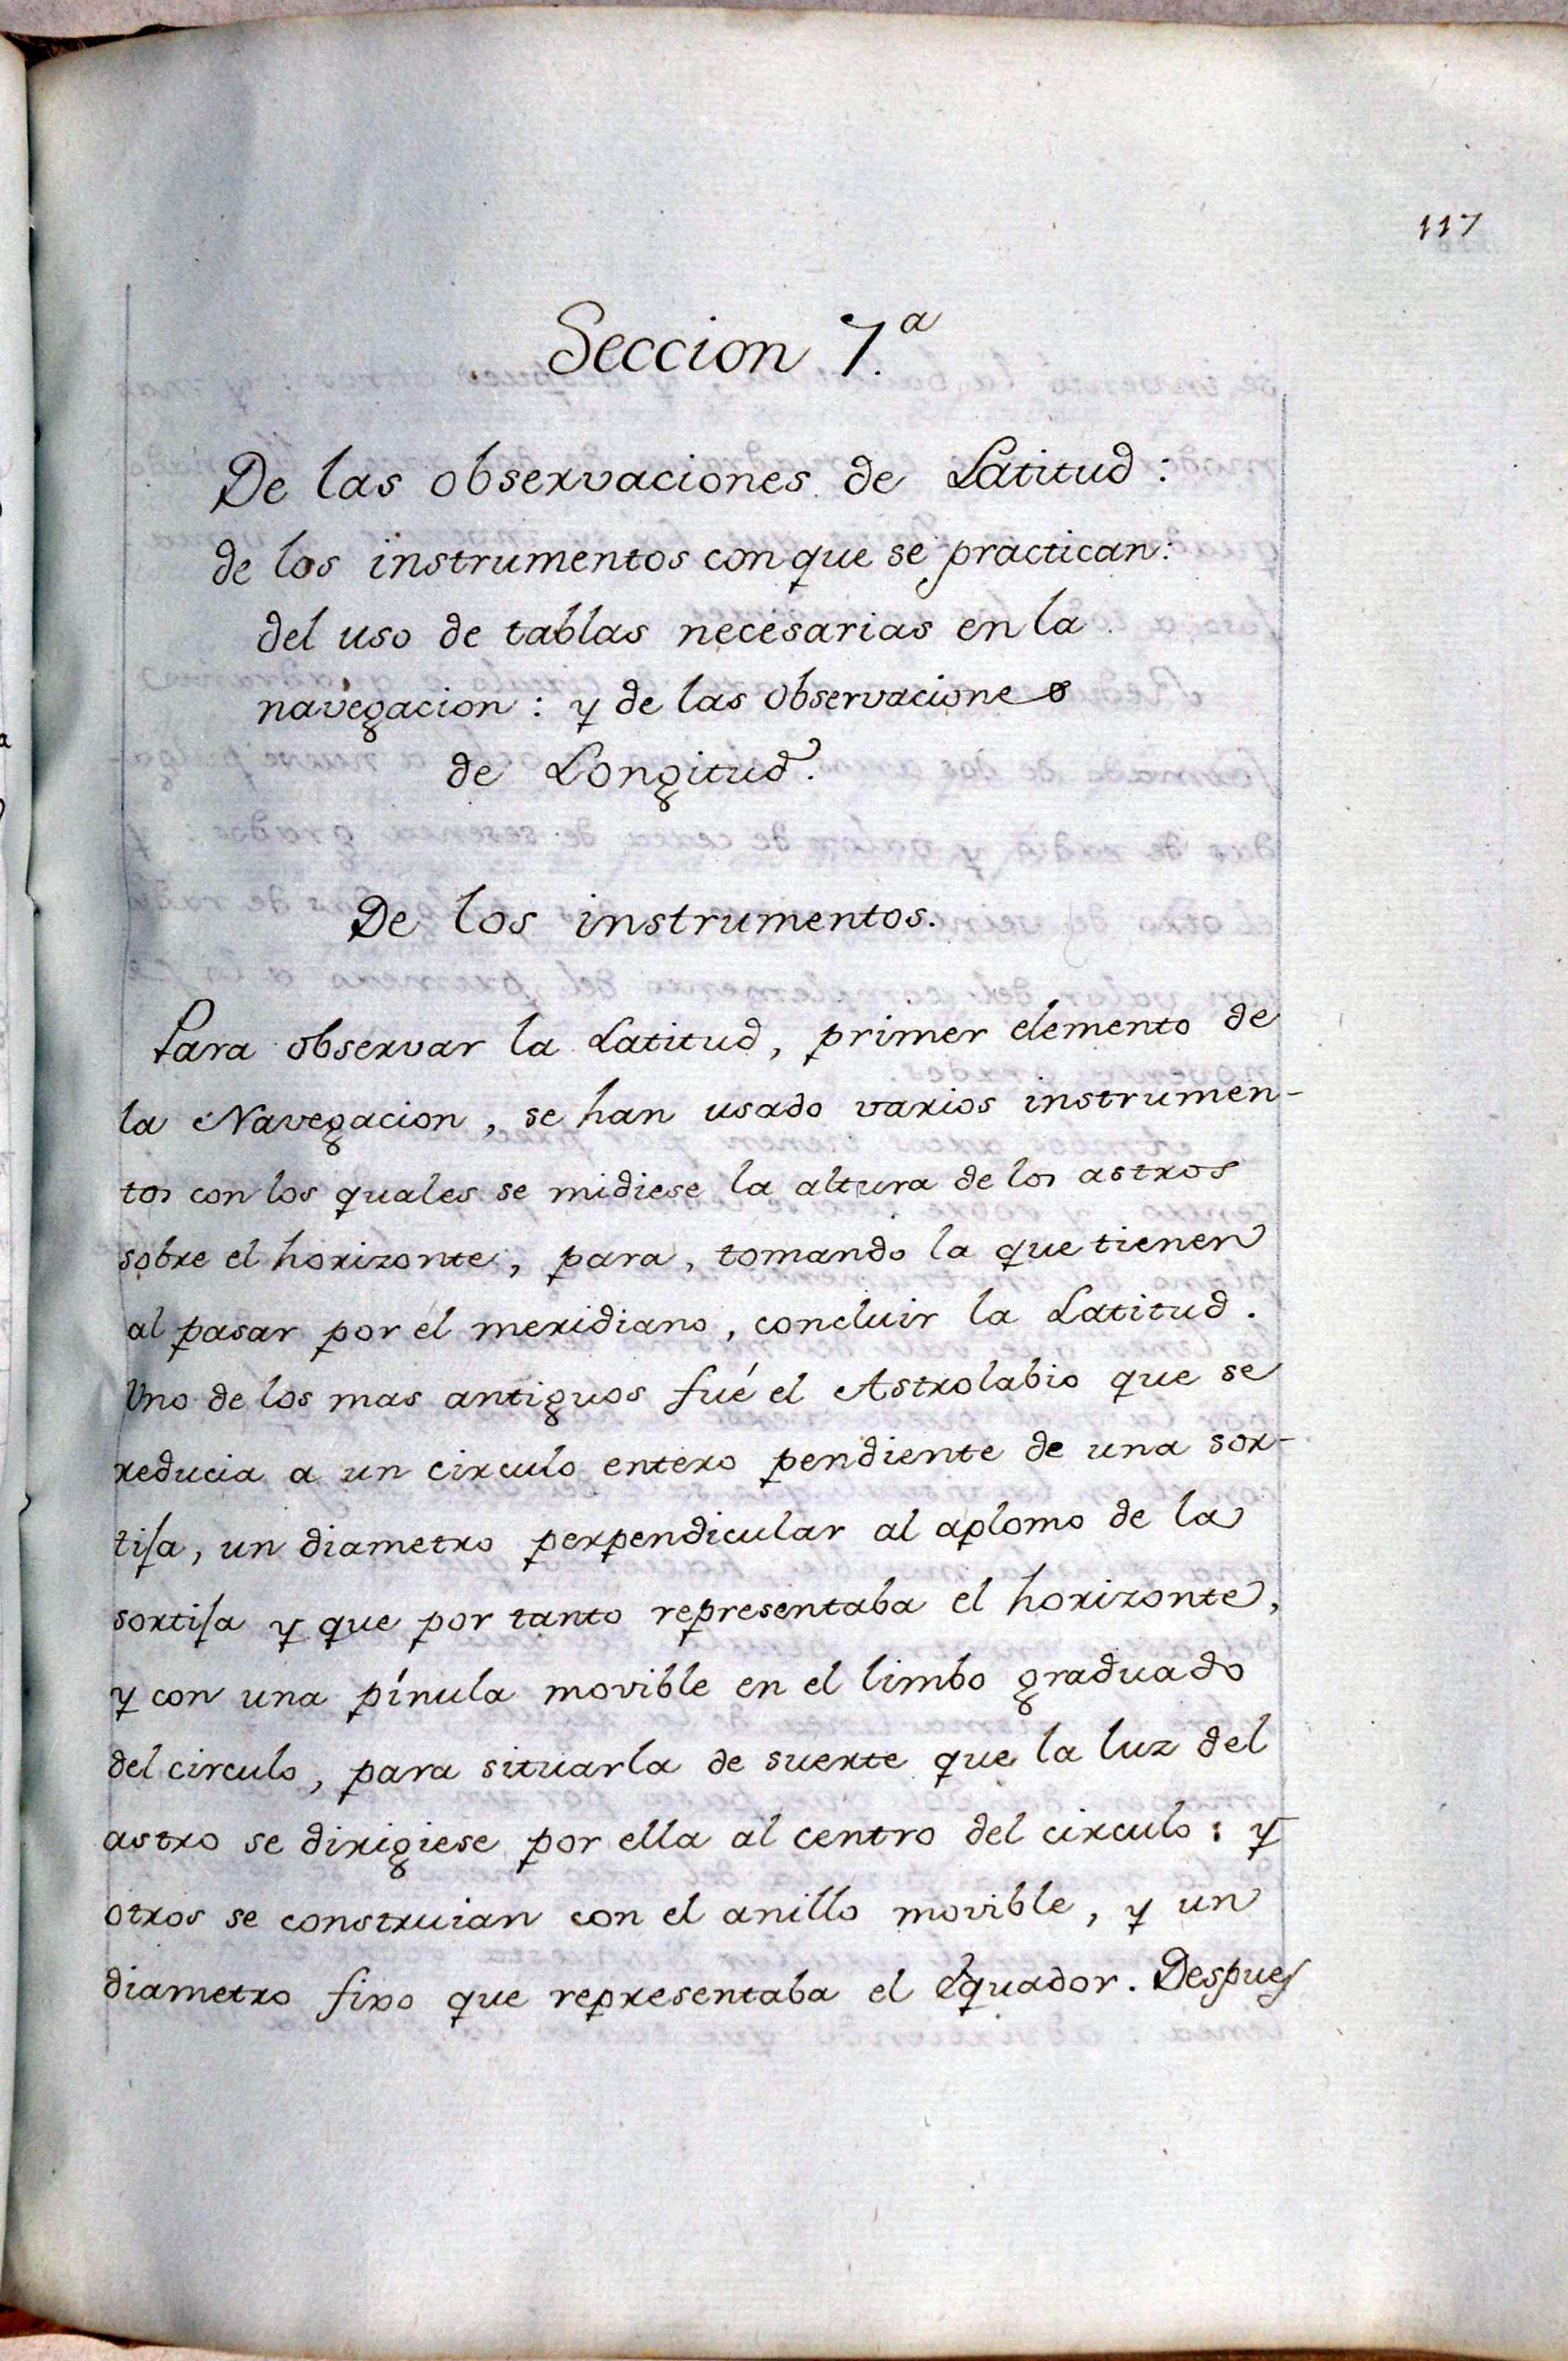 117
Seccion 7.ª
De las observaciones de Latitud:
de los instrumentos con que se practican:
del uso de tablas necesarias en la
navegacion: y de las observaciones
de Longitud.
De los instrumentos.
Para observar la Latitud, primer elemento de
la Navegacion, se han usado varios instrumen-
tos con los quales se midiese la altura de los astros
sobre el horizonte, para, tomando la que tienen
al pasar por el meridiano, concluir la Latitud.
Uno de los mas antiguos fué el Astrolabio que se
reducia a un circulo entero pendiente de una sor-
tija, un diametro perpendicular al aplomo de la
sortija y que por tanto representaba el horizonte,
y con una pínula movible en el limbo graduado
del circulo, para situarla de suerte que la luz del
astro se dirigiese por ella al centro del circulo: y
otros se construian con el anillo movible, y un
diametro fixo que representaba el Equador. Despues